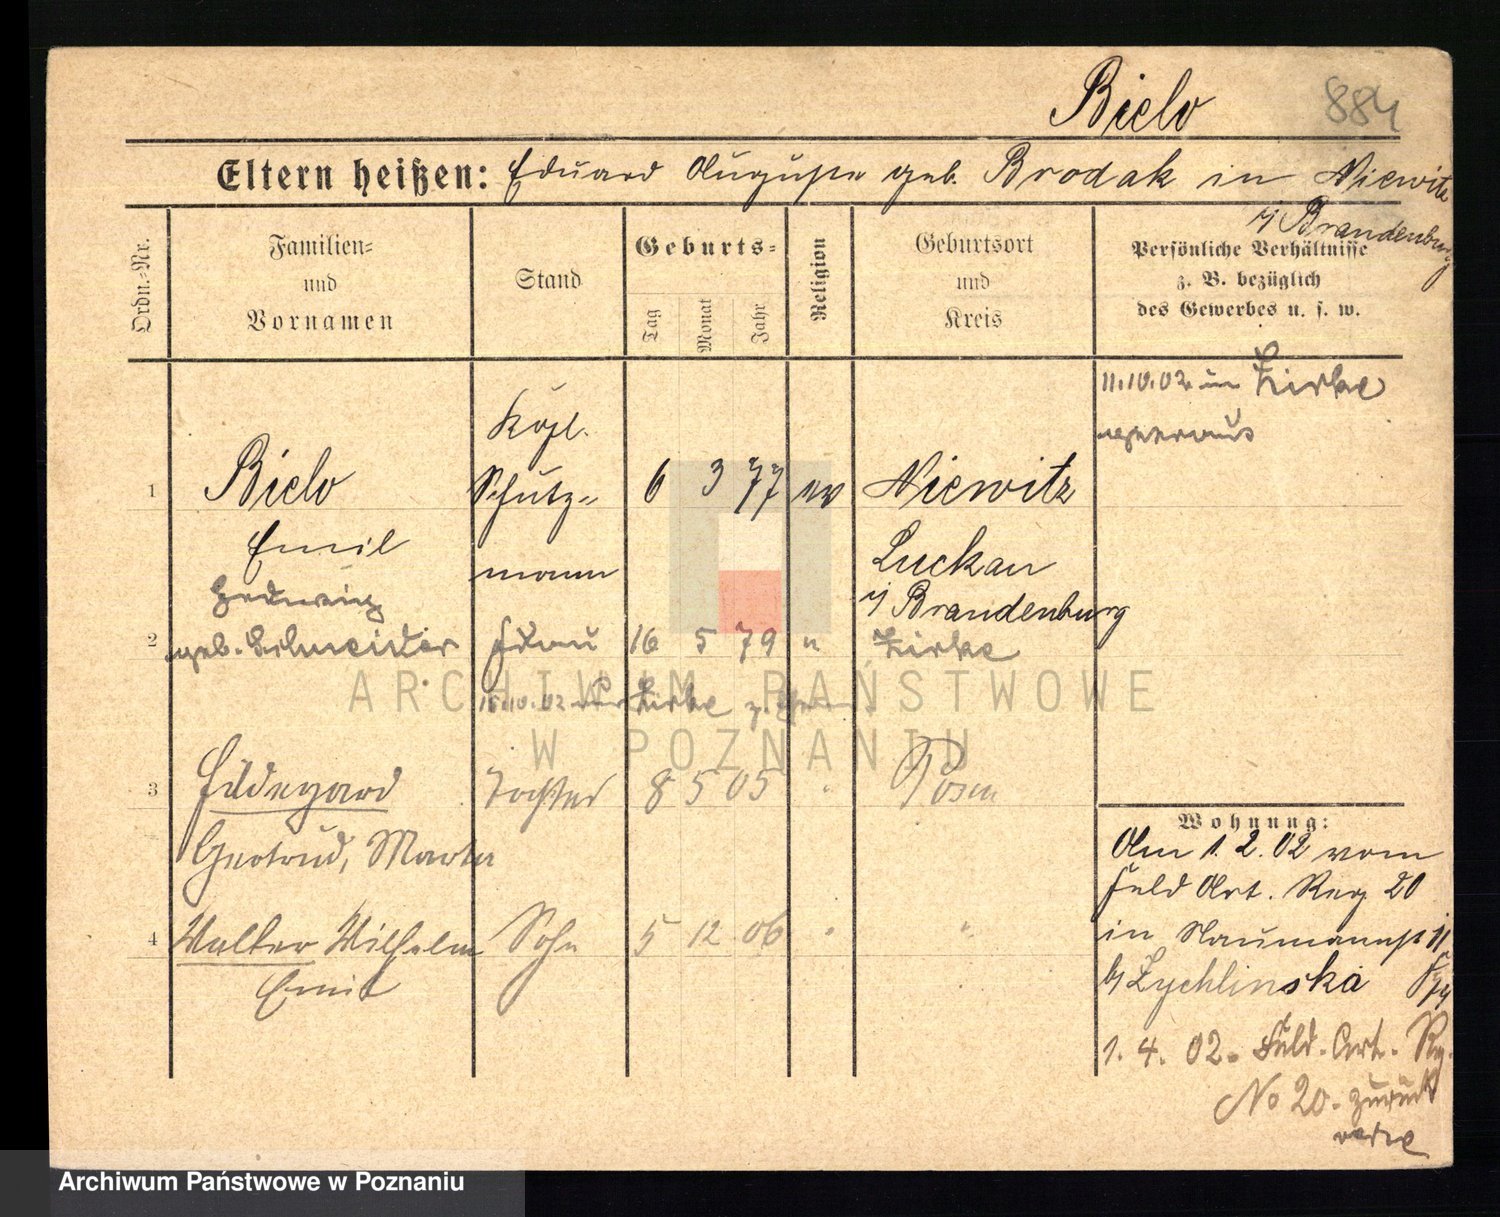 Bielo
884
Eltern heißen: Eduard Auguste geb. Brodak in Niewitz
i/ Brandenburg
Ordn.-Nr.
Familien-
und
Vornamen
Stand
Geburts-
Tag
Monat
Jahr
Religion
Geburtsort
und
Kreis
Persönliche Verhältnisse
z. B. bezüglich
des Gewerbes u. s. w.
11.10.02. in Zirke
Kgl.
1 Bielo Schutz- 6 3 77 ev Niewitz
Emil mann Luckau
Hedwig i/ Brandenburg
2 geb. Schneider Frau 16 5 79 " Zirke
15.10.02 Zirke
3 Hildegard Tochter 8 5 05 " Posen
Gertrud, Marta
4 Walter Wilhelm Sohn 5 12 06 " "
Emil
Wohnung:
Am 1. 2. 02 vom
Feld Art. Reg 20
in Naumannst 11
b/ Zychlinska
1. 4. 02. Feld. Art. Rg.
No 20. zurück
ARCHIWUM PAŃSTWOWE
W POZNANIU
Archiwum Państwowe w Poznaniu